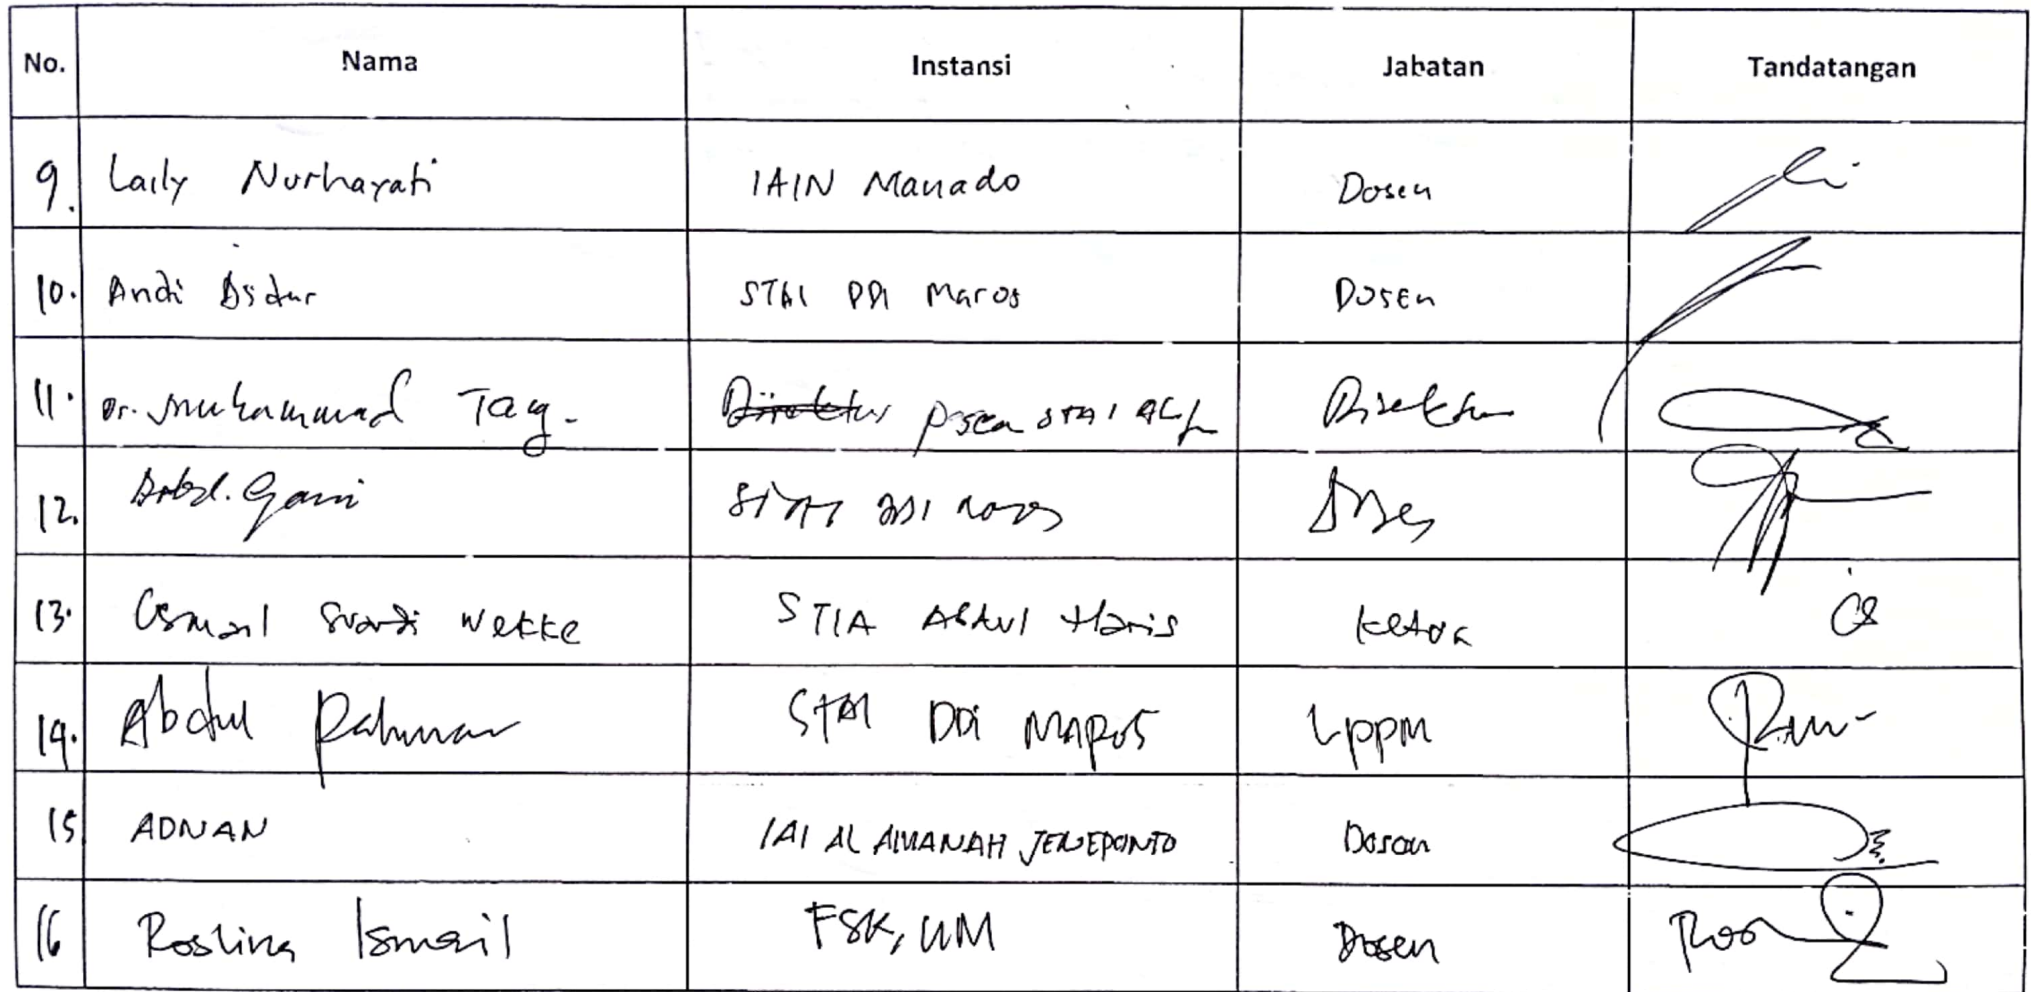 No. Nama Instansi Jabatan Tandatangan
9. Laily Nurhayati IAIN Manado Dosen
10. Andi STAI DDI Maros Dosen
11. Dr. Muhammad Tag. Direktur Dosen STAI Direktur
12. Abd. Gani
13. Ismail Suardi Wekke STIA Abdul Haris Ketua
14. Abdul Rahman STAI DDI MAROS LPPM
15 ADNAN IAI AL AMANAH JENEPONTO Dosen
16 Roslina Ismail FSK, UM Dosen